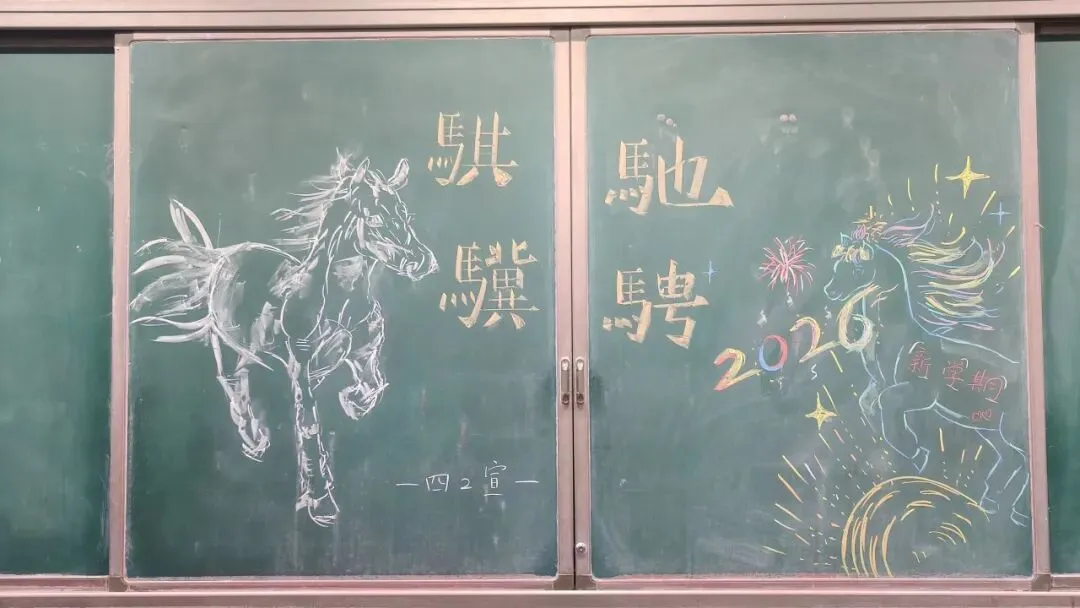 騏
驥
馳
騁
2026
新学期
一四2宣一